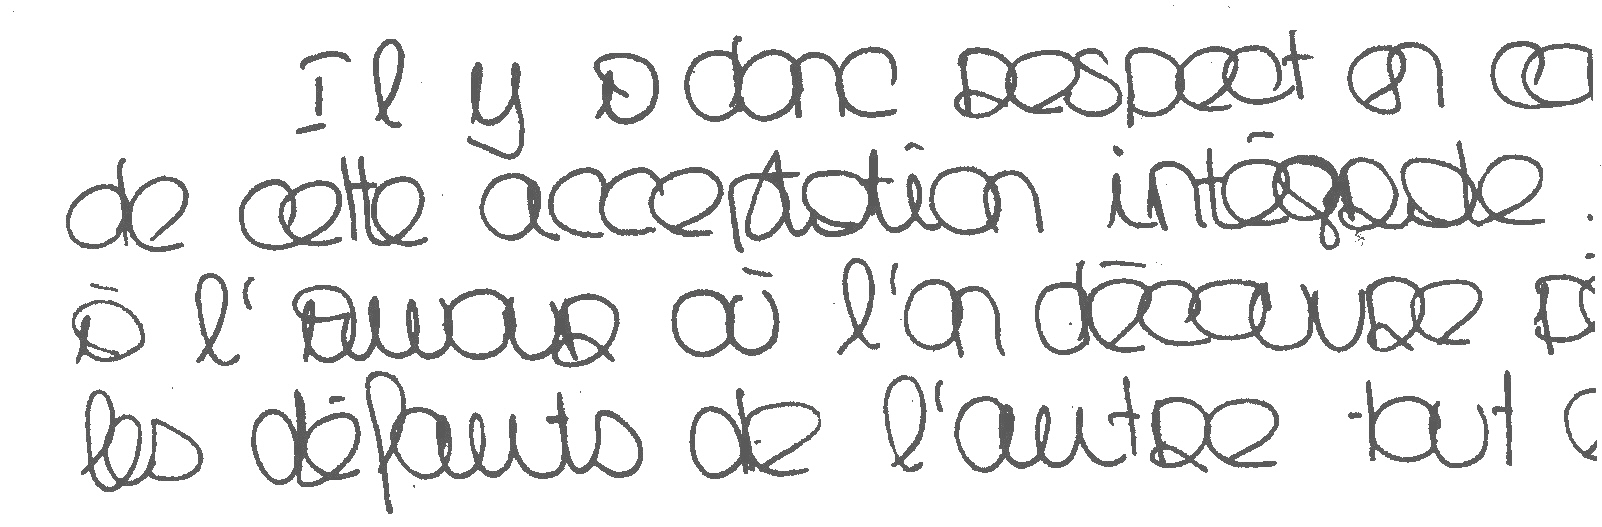 Il y a donc respect en ca
de cette acceptation intégrale.
à l'amour où l'on découvre
les défauts de l'autre tout